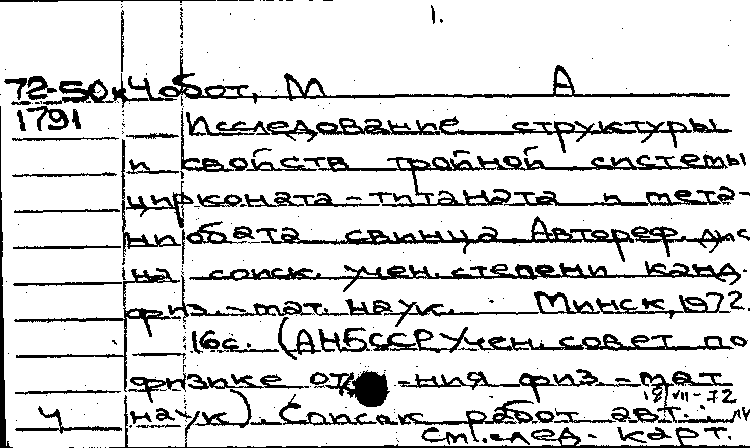 1.
72-50к Чобот, М А
1791 Исследование структуры
и свойств тройной системы
цирконата-титаната и мета-
ниобата свинца. Автореф. дис
на соиск. учен. степени канд.
физ.-мат. наук. Минск, 1972.
16с. (АНБССР. Учен. совет по
физике -ния физ-мат
18/VII-72
Ч наук). Список работ авт.
См. след. карт.